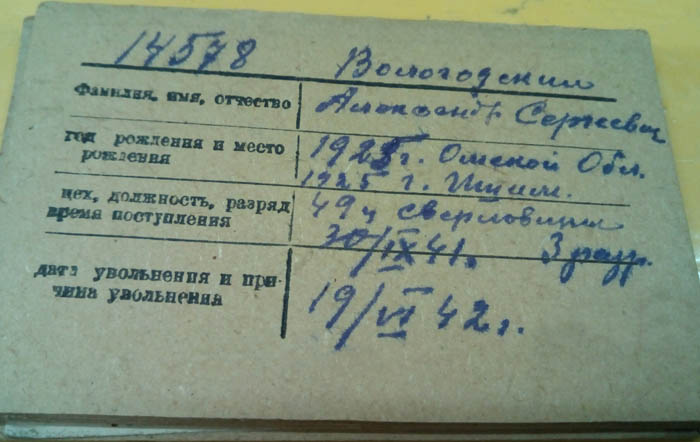 14578 Вологодский
Фамилия, имя, отчество Александр Сергеевич
год рождения и место рождения 1925г. Омской Обл.
1925 г. Ишим.
цех, должность, разряд время поступления 49ц сверловщик
30/IX 41г. 3 разр.
дата увольнения и при-
чина увольнения 19/VI 42г.